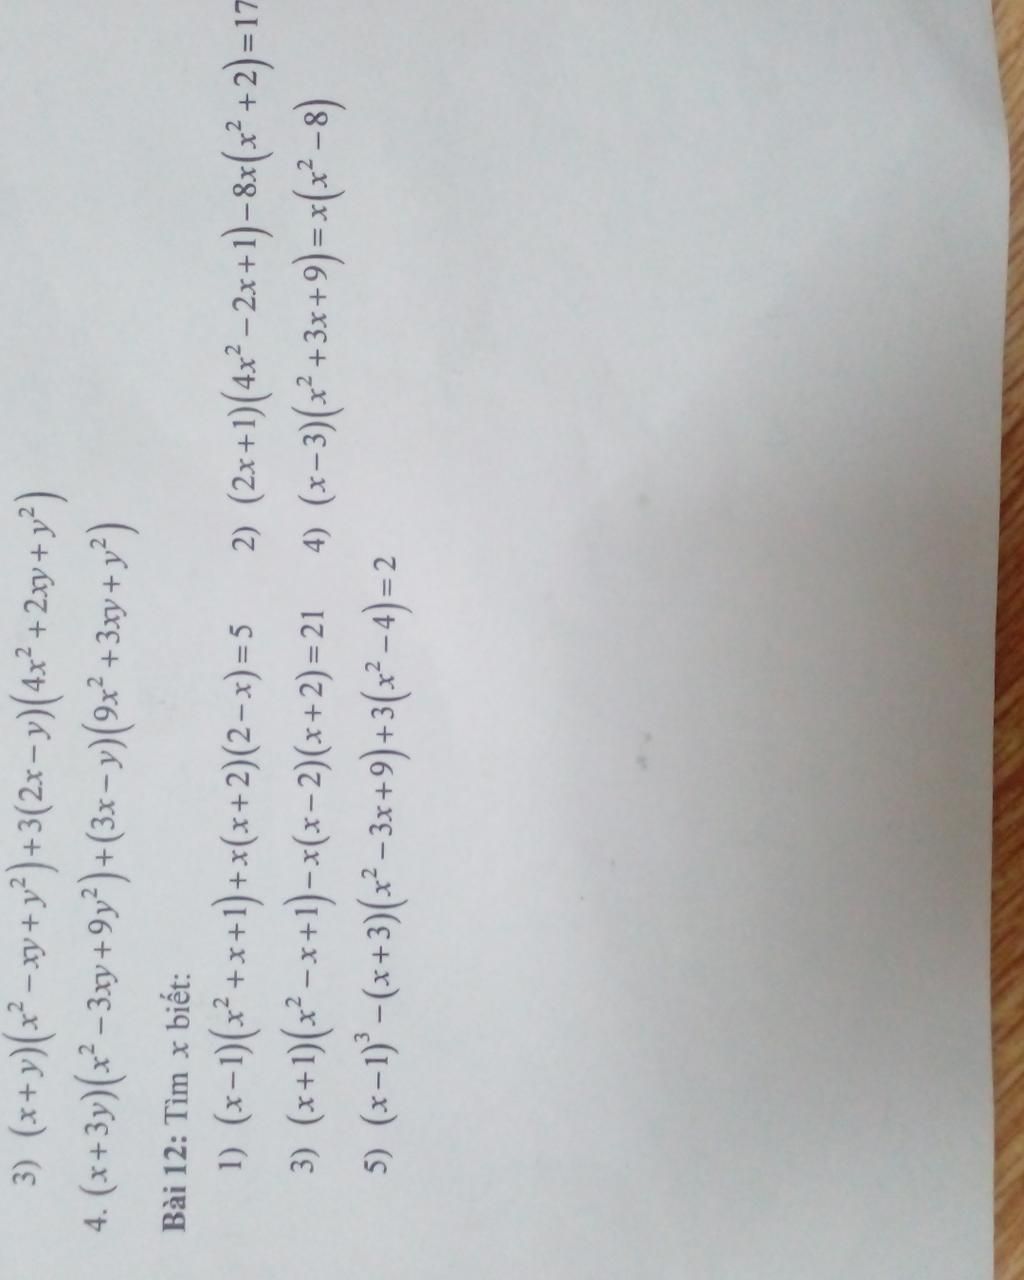 3) (x+y)(x² − xy + y²) + 3(2x − y)(4x² + 2xy + y²)
4. (x+3y)(x² − 3xy + 9y²) + (3x − y)(9x² + 3xy + y²)
Bài 12: Tìm x biết:
1) (x−1)(x² + x + 1) + x(x+2)(2−x) = 5 2) (2x+1)(4x² − 2x + 1) − 8x(x² + 2) = 17
3) (x+1)(x² − x + 1) − x(x−2)(x+2) = 21 4) (x−3)(x² + 3x + 9) = x(x² − 8)
5) (x−1)³ − (x+3)(x² − 3x + 9) + 3(x² − 4) = 2